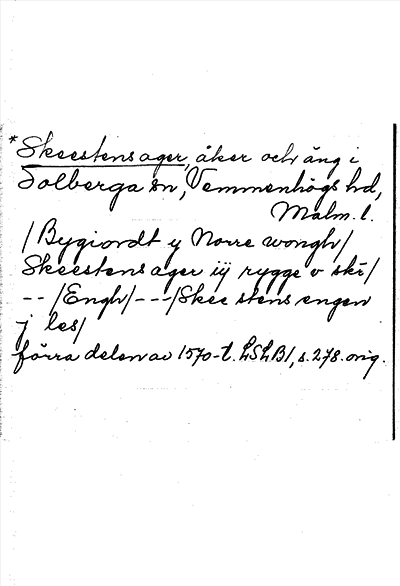 *Skeestensager, åker och äng i
Solberga sn, Vemmenhögs hd,
Malm. l.
/Bygiordt y Norre wongh/
Skeestens ager iij rygge v skr/
-- /Engh/---/Skee stens engen
j les/
förra delen av 1570-t. LSLB1, s. 278. orig.